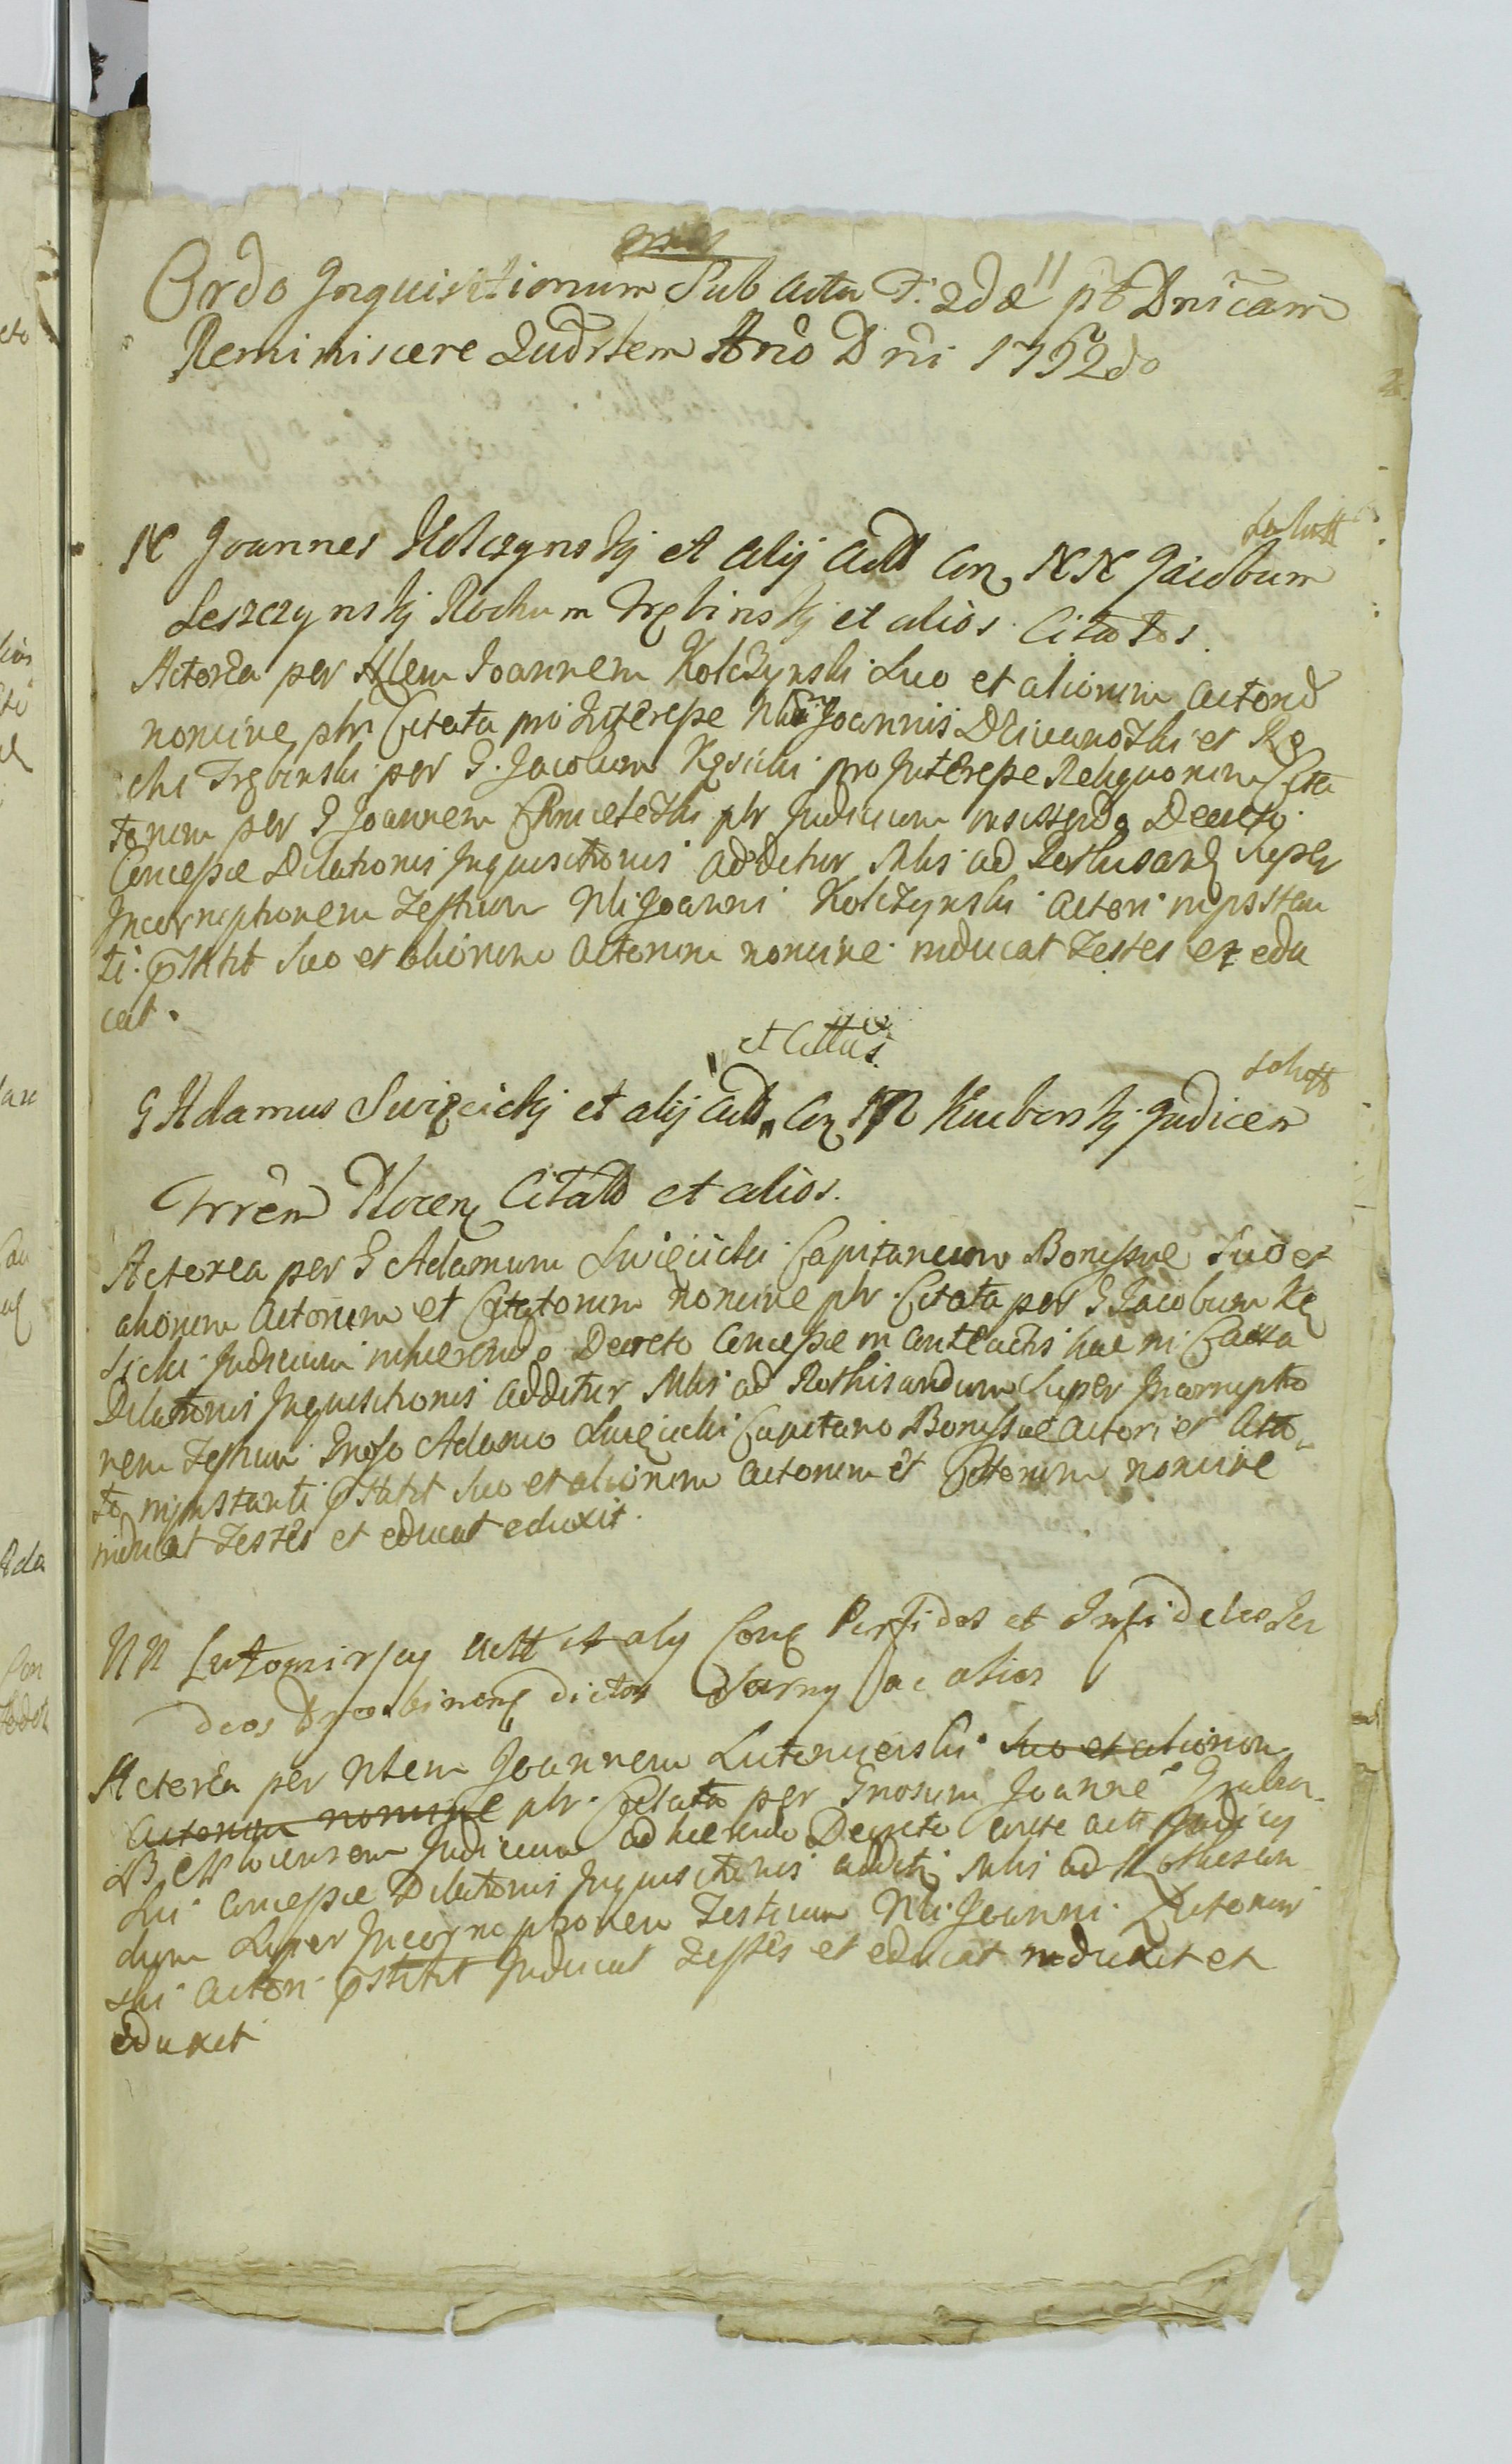 Ordo Inquisitionum Sub acta F. 2dae pt Dnicam
Reminiscere Qudrlem Ano Dni 1752do
N Joannes Kolczynskj et alij Actt Con NN Jacobum
Leszczynskj Rochum Trębinskj et alios Citatos.
Actorea per Nlem Joannem Kolczynski Suo et aliorum actorũ
nomine phr Citata pro Interesse Joannis et Ro
chi Trębinski per G. Jacobum Kęsicki pro Interesse Reliquorum Cita
torum per G Joannem phr Judicium insistendo Decreto
Concessae Dilationis Inquisitionis additur Mlis ad Rothisand Super
Incorruptionem Testium Nli Joanni Kolczynski actori inpsten
ti suo et aliorum actorum nomine inducat Testes et edu
cat.
et Cittus
G Adamus Swięcickj et alij Actt Con Kucborskj Judicem
Trrem Plocen Citatt et alios.
Actorea per G Adamum Swięcicki Capitaneum Bonssue Suo et
aliorum Actorum et Citatorum nomine phr. Citata per G Jacobum Kę
sicki Judicium inhaerendo Decreto Concessae in anteactis hac in Causa
Dilationis Inquisitionis additur Mlis ad Rothisandum Super Incorruptio
nem Testium Gnoso Adamo Swięcicki Capitano Bonssue actori et Citta
to inpnstanti suo et aliorum actorum et Cittorum nomine
inducat Testes et educat eduxit.
NN Lutomirscy actt et alij Con Perfidos et Infideles Ju
deos Drobinen dictos Czarny ac alios
Actorea per Nlem Joannem Lutomirski suo et aliorum
actorum nomine phr. Citata per Gnosum Joanne
Judicium adhaerendo Decreto ante act Judicij
sui Concessae Dilationis Inquisitionis additj Mlis ad Rothisan
dum Super Incorruptionem Testium Nli Joanni Lutomir
ski actori Inducat Testes et educat induxit et
eduxit